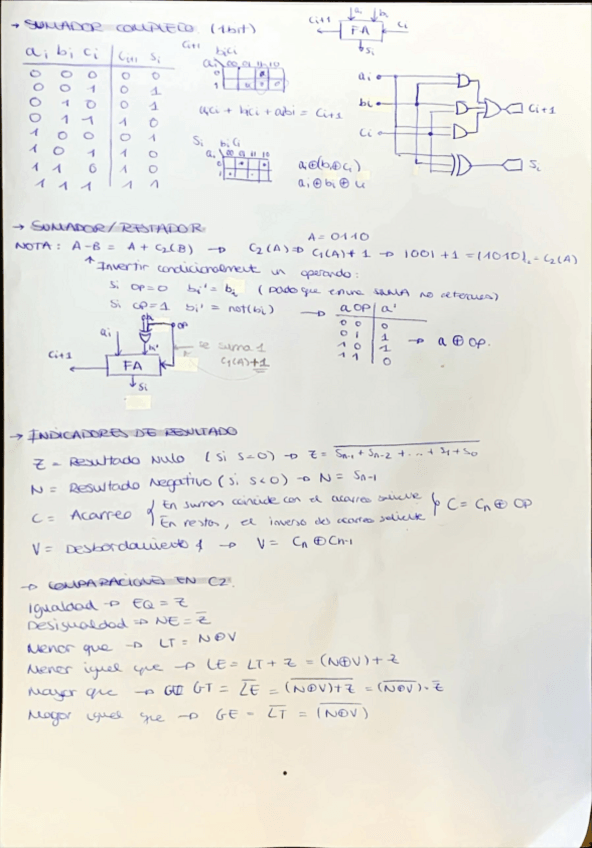 → SUMADOR COMPLETO (1bit)
ai bi ci Ci+1 Si
0 0 0 0 0
0 0 1 0 1
0 1 0 0 1
0 1 1 1 0
1 0 0 0 1
1 0 1 1 0
1 1 0 1 0
1 1 1 1 1
Ci+1 bici
ai 00 01 11 10
0
1
aici + bici + aibi = Ci+1
Si bi Ci
ai 00 01 11 10
0
1
ai⊕(bi⊕ci)
ai ⊕ bi ⊕ ci
ai bi
Ci+1 FA Ci
Si
ai
bi
Ci
Ci+1
Si
→ SUMADOR/RESTADOR
A = 0110
NOTA: A-B = A + C2(B) → C2(A) → C1(A)+1 → 1001 + 1 = (1010)2 = C2(A)
Invertir condicionalmente un operando:
Si OP=0 bi' = bi (Dado que entra SUMA no
Si OP=1 bi' = not(bi) →
a OP a'
0 0 0
0 1 1
1 0 1
1 1 0
→ a ⊕ OP.
bi OP
ai bi'
Ci+1 FA
Si
se suma 1
C1(A)+1
→ INDICADORES DE RESULTADO
Z = Resultado Nulo (Si S=0) → Z = Sn-1 + Sn-2 + ... + S1 + S0
N = Resultado Negativo (Si S<0) → N = Sn-1
C = Acarreo { En sumas coincide con el acarreo saliente
En restas, el inverso del acarreo saliente } C = Cn ⊕ OP
V = Desbordamiento → V = Cn ⊕ Cn-1
→ COMPARACIONES EN C2.
Igualdad → EQ = Z
Desigualdad → NE = Z̅
Menor que → LT = N⊕V
Menor igual que → LE = LT + Z = (N⊕V) + Z
Mayor que → GT = L̅E̅ = \overline{(N⊕V)+Z} = \overline{(N⊕V)}·Z̅
Mayor igual que → GE = L̅T̅ = \overline{(N⊕V)}